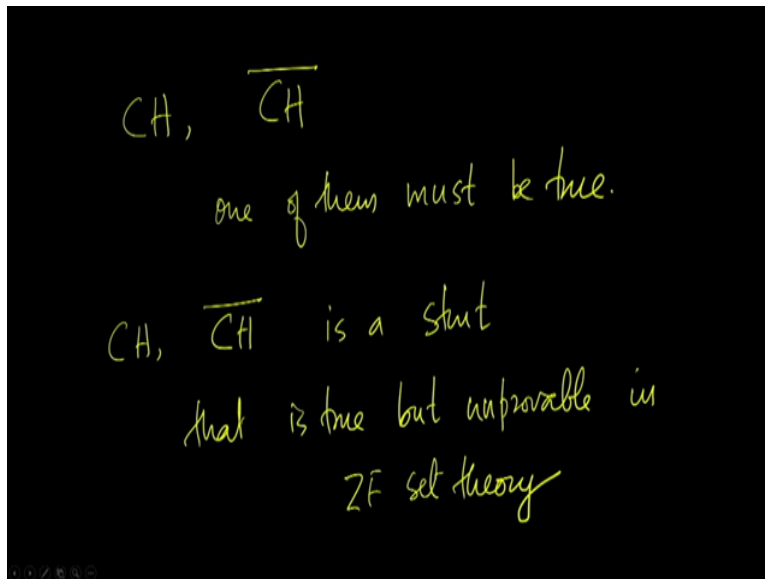 CH, \overline{CH}
one of them must be true.
CH, \overline{CH} is a stmt
that is true but unprovable in
ZF set theory